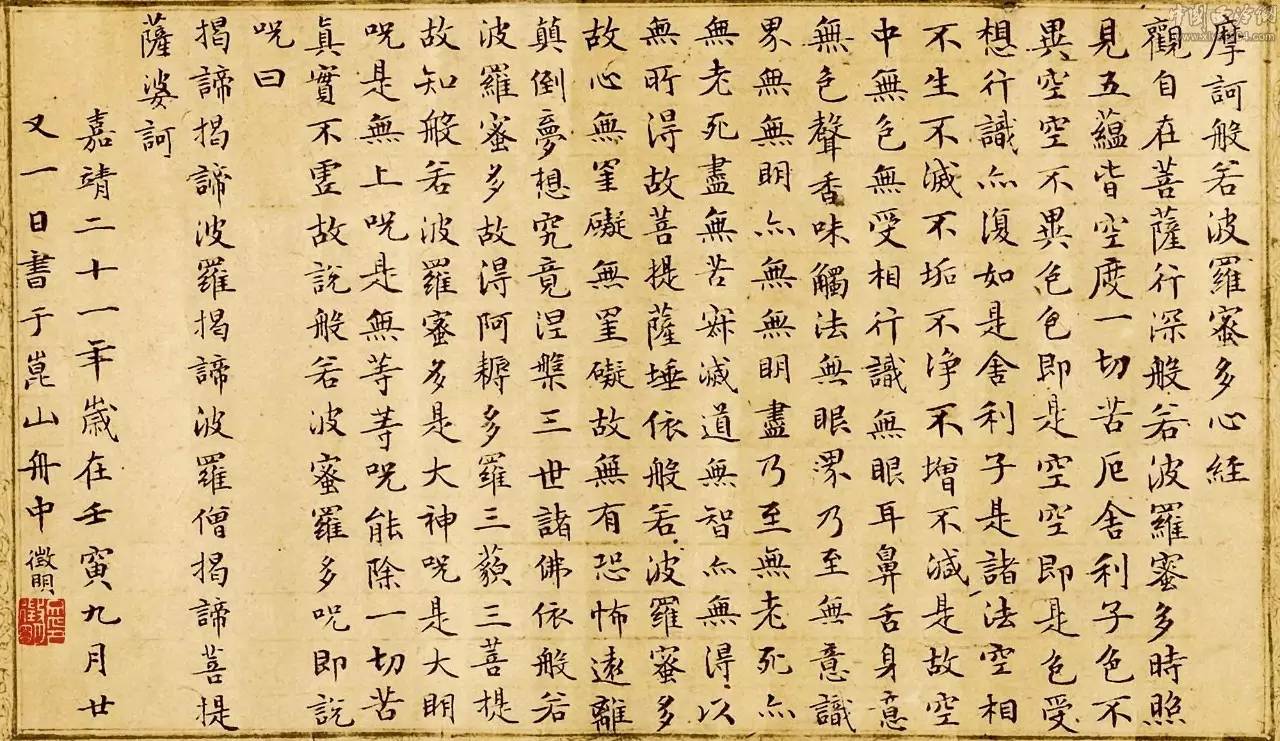 摩訶般若波羅蜜多心經
觀自在菩薩行深般若波羅蜜多時照
見五蘊皆空度一切苦厄舍利子色不
異空空不異色色即是空空即是色受
想行識亦復如是舍利子是諸法空相
不生不滅不垢不淨不增不減是故空
中無色無受相行識無眼耳鼻舌身意
無色聲香味觸法無眼界乃至無意識
界無無明亦無無明盡乃至無老死亦
無老死盡無苦寂滅道無智亦無得以
無所得故菩提薩埵依般若波羅蜜多
故心無罣礙無罣礙故無有恐怖遠離
顛倒夢想究竟涅槃三世諸佛依般若
波羅蜜多故得阿耨多羅三藐三菩提
故知般若波羅蜜多是大神咒是大明
咒是無上咒是無等等咒能除一切苦
真實不虛故說般若波蜜羅多咒即說
咒曰
揭諦揭諦波羅揭諦波羅僧揭諦菩提
薩婆訶
嘉靖二十一年歲在壬寅九月廿
又一日書于崑山舟中 徵明